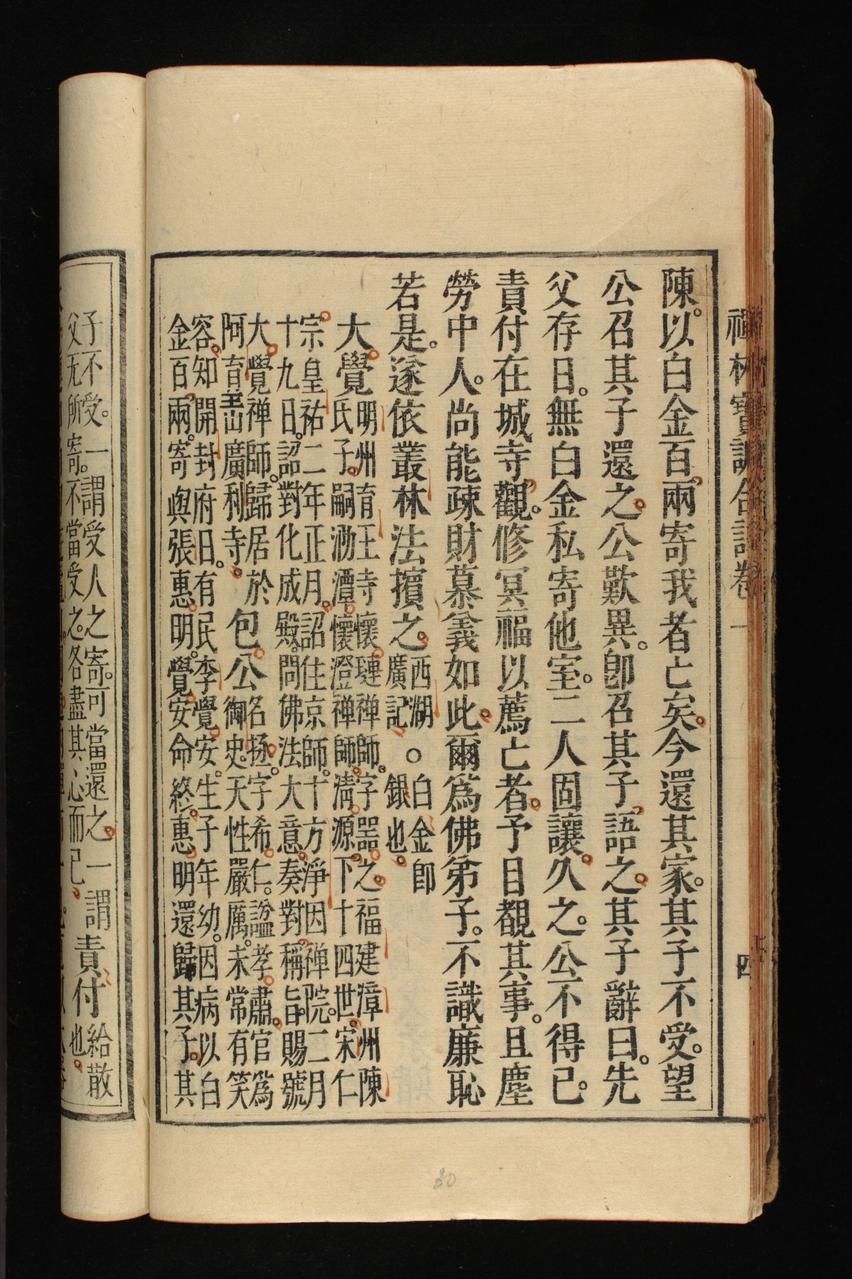 陳。以白金百兩。寄我者亡矣。今還其家。其子不受。望
公召其子還之。公歎異。卽召其子。語之。其子辭曰。先
父存日。無白金私寄他室。二人固讓。久之。公不得已。
責付在城寺觀。修冥福以薦亡者。予目覩其事。且塵
勞中人。尚能疎財慕義如此。爾爲佛弟子。不識廉恥
若是。遂依叢林法擯之。西湖廣記○白金卽銀也。
大覺。明州育王寺懷璉禪師。字器之。福建漳州陳
氏子。嗣泐潭懷澄禪師。淸源下十四世。宋仁
宗皇祐二年正月。詔住京師。十方淨因禪院。二月
十九日。詔對化成殿。問佛法大意。奏對稱旨。賜號
大覺禪師。歸居於包公。名拯。字希仁。諡孝肅。官爲
阿育王山廣利寺。御史。天性嚴厲。未常有笑
容。知開封府日。有民李覺安。生子年幼。因病以白
金百兩。寄與張惠明。覺安命終。惠明還歸其子。其
子不受。一謂受人之寄。可當還之。一謂責付給散
父无所寄。不當受之。各盡其心而已。也。
禪林寶訓合註卷一
四
30